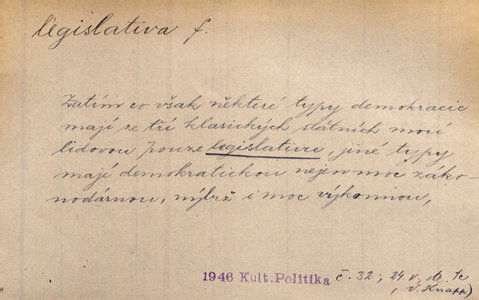 legislativa f.
Zatím co však některé typy demokracie
mají ze tří klasických státních mocí
lidovou pouze legislativu, jiné typy
mají demokratickou nejen moc záko-
nodárnou, nýbrž i moc výkonnou,
1946 Kult. Politika č. 32, 24. V. str.
(V. Knapp)